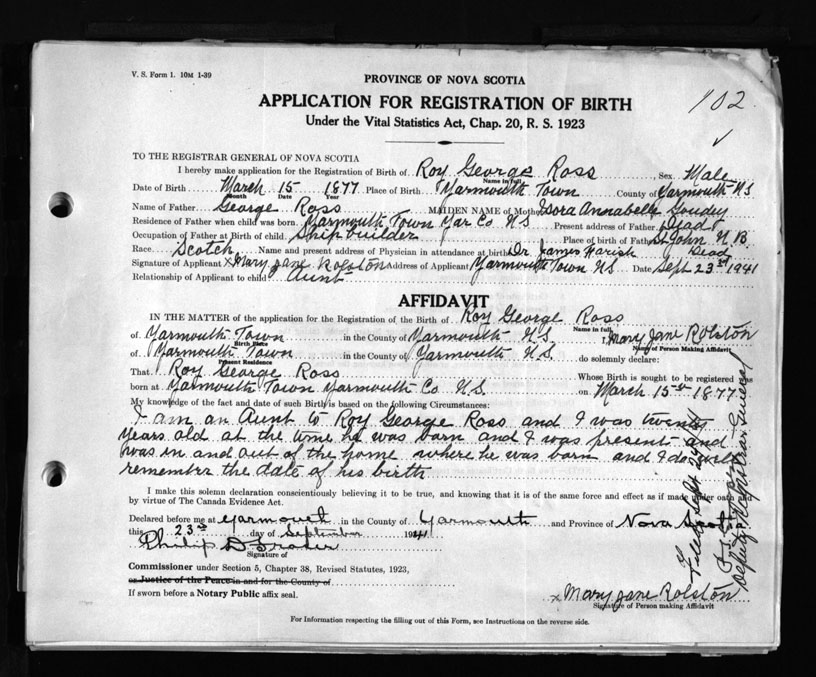 V. S. Form 1. 10M 1-39
PROVINCE OF NOVA SCOTIA
102
APPLICATION FOR REGISTRATION OF BIRTH
Under the Vital Statistics Act, Chap. 20, R. S. 1923
TO THE REGISTRAR GENERAL OF NOVA SCOTIA
I hereby make application for the Registration of Birth of Roy George Ross Sex Male
Name in full
Date of Birth March 15 1877 Place of Birth Yarmouth Town County of Yarmouth N S
Month Date Year
Name of Father George Ross MAIDEN NAME of Mother Isora Annabelle Goudey
Residence of Father when child was born Yarmouth Town Yar Co N S Present address of Father Dead
Occupation of Father at Birth of child Ship builder Place of birth of Father St John N B
Race Scotch Name and present address of Physician in attendance at birth Dr James Harish Dead
Signature of Applicant x Mary Jane Rolston Address of Applicant Yarmouth Town N S Date Sept 23rd 1941
Relationship of Applicant to child Aunt
AFFIDAVIT
IN THE MATTER of the application for the Registration of the Birth of Roy George Ross
Name in full
of Yarmouth Town in the County of Yarmouth N S. I, Mary Jane Rolston
Birth Place Name of Person Making Affidavit
of Yarmouth Town in the County of Yarmouth N.S. do solemnly declare:
Present Residence
That Roy George Ross Whose Birth is sought to be registered was
born at Yarmouth Town Yarmouth Co N.S. on March 15th 1877
My knowledge of the fact and date of such Birth is based on the following Circumstances:
I am an Aunt to Roy George Ross and I was twenty
years old at the time he was born and I was present and
was in and out of the home where he was born and I do well
remember the date of his birth
I make this solemn declaration conscientiously believing it to be true, and knowing that it is of the same force and effect as if made under oath and
by virtue of The Canada Evidence Act.
Declared before me at Yarmouth in the County of Yarmouth and Province of Nova Scotia
this 23rd day of September 1941
Philip D Fraser
Signature of
Commissioner under Section 5, Chapter 38, Revised Statutes, 1923,
or Justice of the Peace in and for the County of
If sworn before a Notary Public affix seal.
x Mary Jane Rolston
Signature of Person making Affidavit
For Information respecting the filling out of this Form, see Instructions on the reverse side.
Filed Sept 24
Deputy Registrar General